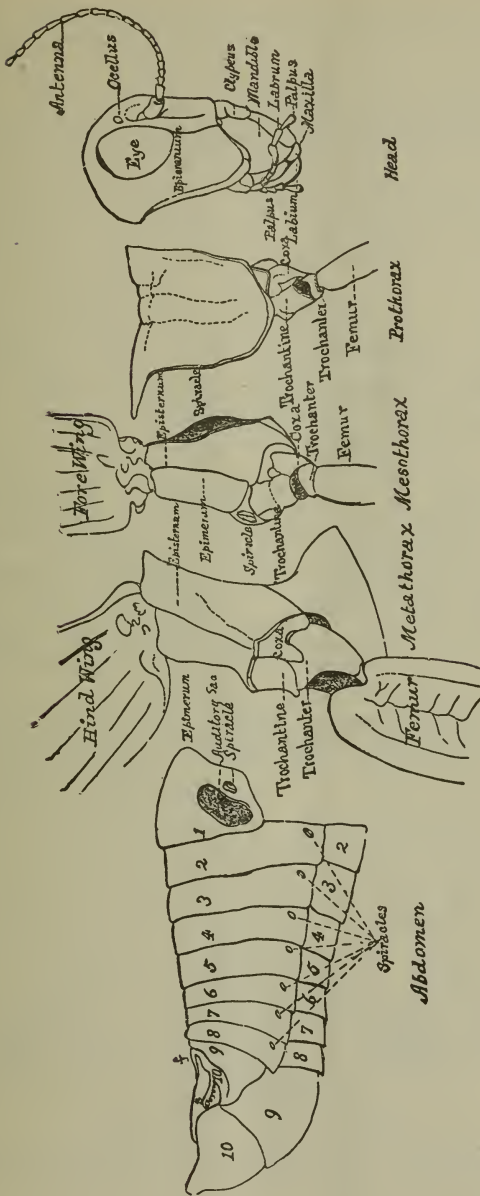 Antenna
Ocellus
Eye
Epicranium
Clypeus
Mandible
Labrum
Palpus
Maxilla
Palpus
Labium
Head
Coxa
Trochantine
Trochanter
Femur
Prothorax
Fore Wing
Episternum
Spiracle
Epimerum
Spiracle
Trochantine
Coxa
Trochanter
Femur
Mesothorax
Hind Wing
Episternum
Epimerum
Coxa
Trochantine
Trochanter
Femur
Metathorax
Auditory Sac
Spiracle
1
2
3
4
5
6
7
8
9
10
2
3
4
5
6
7
8
9
10
f
Spiracles
Abdomen